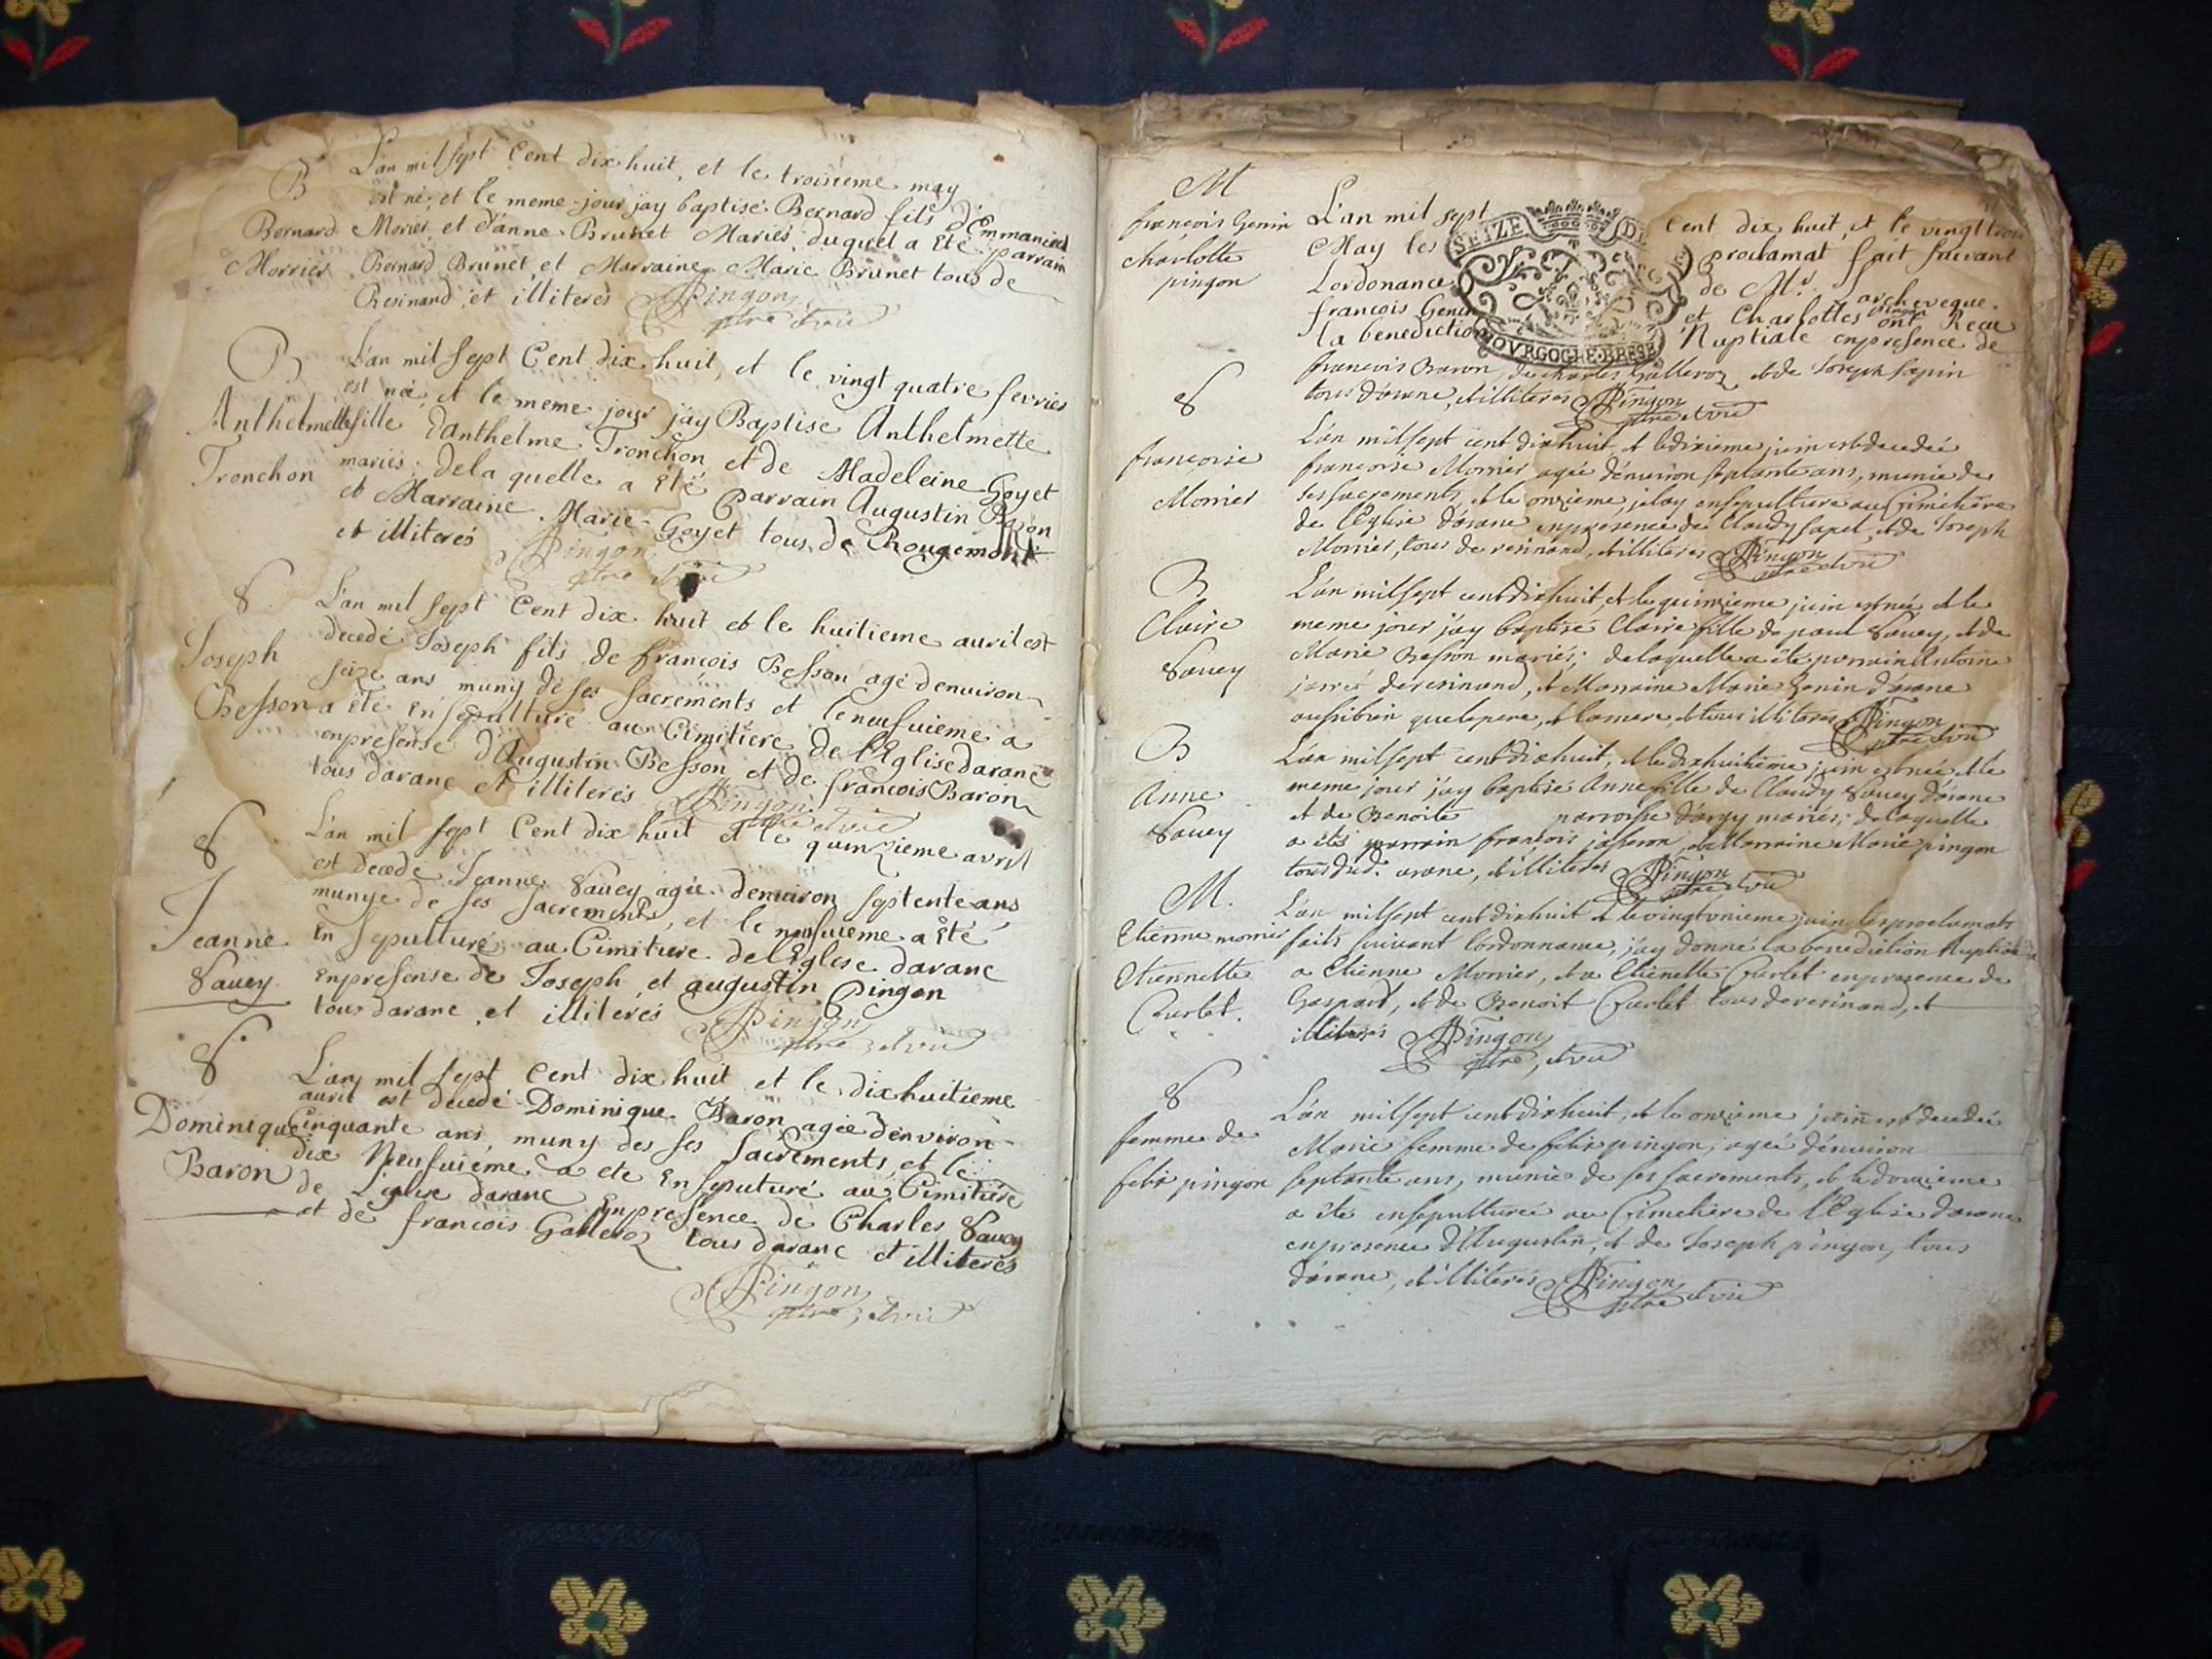 B
Bernard
Morrier
L'an mil sept Cent dix huit, et le troisieme may
est né; et le meme jour jay baptisé Bernard fils d'Emmanuel
Morier, et d'anne Brunet Mariés, duquel a Eté parrain
Bernard Brunet, et Marraine Marie Brunet tous de
Resinand, et illiterés Pingon
ptre et vic
B
Anthelmette
Tronchon
L'an mil sept Cent dix huit, et le vingt quatre fevrier
est née, et le meme jour jay Baptise Anthelmette
fille d'anthelme Tronchon et de Madeleine Goyet
mariés; de la quelle a Eté Parrain Augustin Baron
et Marraine Marie Goyet tous de Rougemont
et illiterés Pingon
ptre et vic
S
Joseph
Besson
L'an mil sept Cent dix huit et le huitieme auril est
decedé Joseph fils de françois Besson agé denuiron
seize ans muny de ses sacrements et le neufuieme a
a Eté En sepulturé au Cimitiere de l'Eglise darane
enpresense d'Augustin Besson et de francois Baron
tous darane et illiterés Pingon
ptre et vic
S
Jeanne
Sauey
L'an mil sept Cent dix huit et le quinzieme avril
est decedé Jeanne Sauey agée denuiron septente ans
munye de ses sacrements, et le neufuieme a Eté
En sepulturé au Cimitiere de l'Eglise darane
enpresense de Joseph et augustin Pingon
tous darane, et illiterés Pingon
ptre, et vic
S
Dominique
Baron
L'an mil sept Cent dix huit et le dixhuitieme
auril est decedé Dominique Baron agée denviron
Cinquante ans, muny des ses Sacrements, et le
dix Neufuiéme a ete Ensepulturé au Cimitiére
de l'eglise darane Enpresence de Charles Sauey
et de francois Galleroz tous darane et illiterés
Pingon
ptre, et vic
M
françois Genin
Charlotte
pingon
SEIZE DE
BOVRGOGNE·BRESSE
L'an mil sept Cent dix huit, et le vingt trois
May les proclamat fait suivant
Lordonance de Mr. archeveque
françois Genin et Charlottes pingon ont Recue
la benediction Nuptiale enpresence de
francois Baron, de charles Galleroz et de Joseph sapin
tous d'arane, et illiteres Pingon
ptre et vic
S
françoise
Morrier
L'an milsept cent dixhuit, et le dixieme juin est decedée
francoise Morrier agée d'enuiron septante ans, munie de
ses sacrements, et le onzieme, je lay ensepulturé au Cimetiére
de l'Eglise d'arane enpresence de Claudy sapel, et de Joseph
Morrier, tous de resinand, et illiteres Pingon
ptre et vic
B
Claire
Sauey
L'an milsept cent dixhuit, et le quinzieme juin est née et le
meme jour j'ay baptisé Claire fille de paul Sauey, et de
Marie Besson mariés; de laquelle a été parrain Antoine
jarret de resinand, et Marraine Marie Genin d'arane
aussi bien que le pere, et la mere et tous illiteres Pingon
ptre et vic
B
Anne
Sauey
L'an milsept cent dixhuit, et le dixhuitiéme juin est née et le
meme jour j'ay baptisé Anne fille de Claudy Sauey d'arane
et de Benoite parroisse d'argy mariés; de laquelle
a étés parrain francois jasseron, et Marraine Marie pingon
tous dud. arane, et illiteres Pingon
ptre et vic
M.
Etienne morrier
Etiennette
Curlet.
L'an milsept cent dixhuit et le vingtonzieme juin les proclamats
faits suivant l'ordonnance, j'ay donné la benediction Nuptiale
a Etienne Morrier, et a Etienette Curlet enpresence de
Gaspard, et de Benoit Curlet tous de resinand, et
illiteres Pingon
ptre, et vic
S
femme de
felix pingon
L'an milsept cent dixhuit, et le onzieme juin est decedée
Marie femme de felix pingon, agée d'enuiron
septante ans, munie de ses sacrements, et le douzieme
a été ensepulturée au Cimetiére de l'Eglise d'arane
enpresence d'Augustin, et de Joseph pingon, tous
d'arane, et illiterés Pingon
ptre et vic